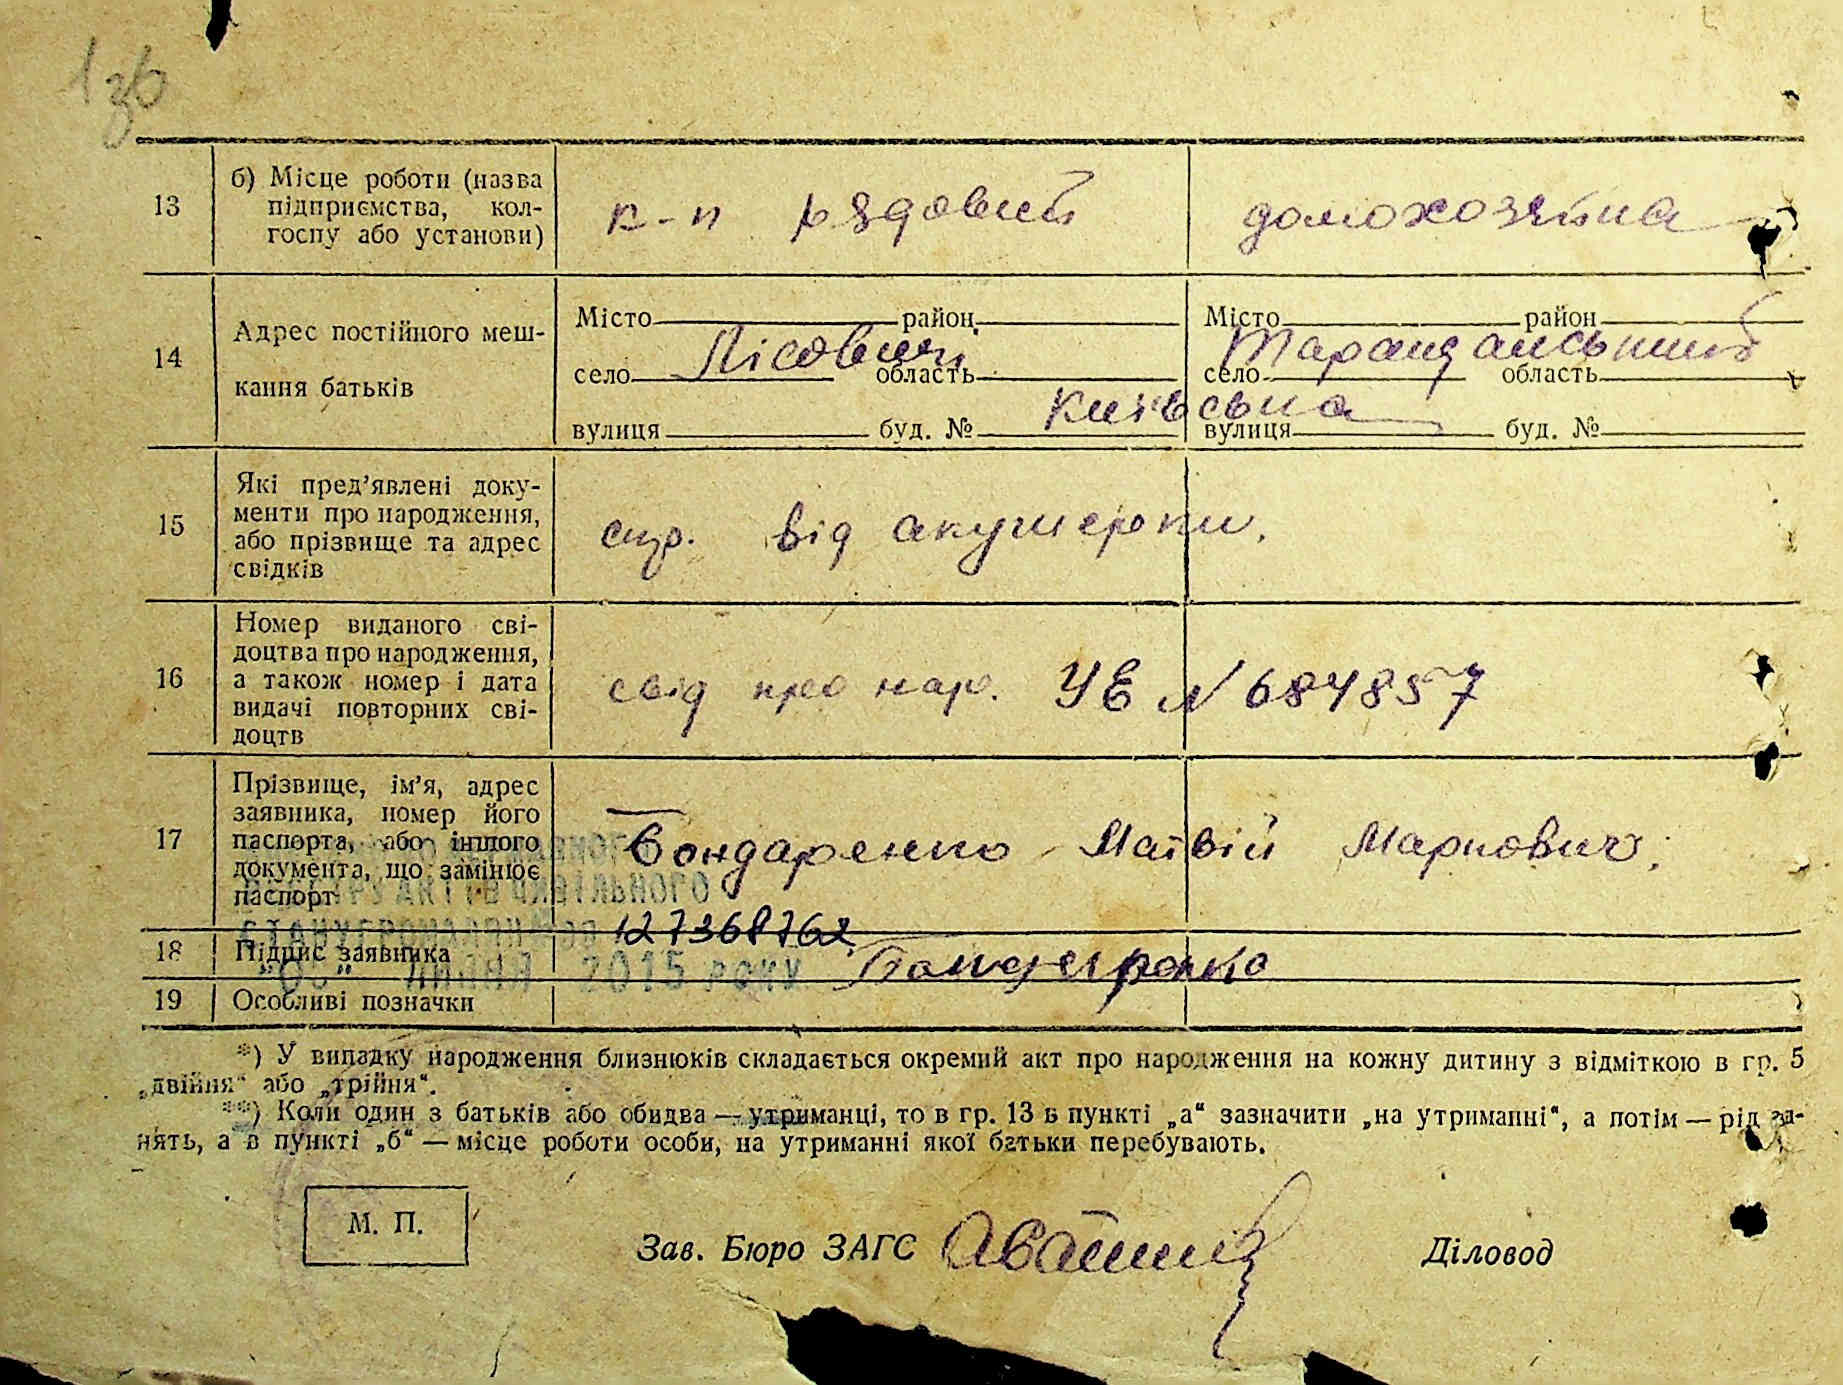 13 б) Місце роботи (назва підприємства, колгоспу або установи) к-п рядовий домохозяйка
14 Адрес постійного меш-
кання батьків
Місто район Місто район
Лісовичі Таращанський
село область село область
Київська
вулиця буд. № вулиця буд. №
15 Які пред’явлені доку-
менти про народження,
або прізвище та адрес
свідків
спр. від акушерки.
16 Номер виданого сві-
доцтва про народження,
а також номер і дата
видачі повторних сві-
доцтв
свід про нар. УЕ N 684857
17 Прізвище, ім’я, адрес
заявника, номер його
паспорта, або іншого
документа, що замінює
паспорт
Бондаренко Матвій Маркович,
127368762
18 Підпис заявника Бондаренко
2015 РОКУ
19 Особливі позначки
*) У випадку народження близнюків складається окремий акт про народження на кожну дитину з відміткою в гр. 5
„двійня“ або „трійня“.
**) Коли один з батьків або обидва — утриманці, то в гр. 13 в пункті „а“ зазначити „на утриманні“, а потім — рід за-
нять, а в пункті „б“ — місце роботи особи, на утриманні якої батьки перебувають.
М. П.
Зав. Бюро ЗАГС Діловод